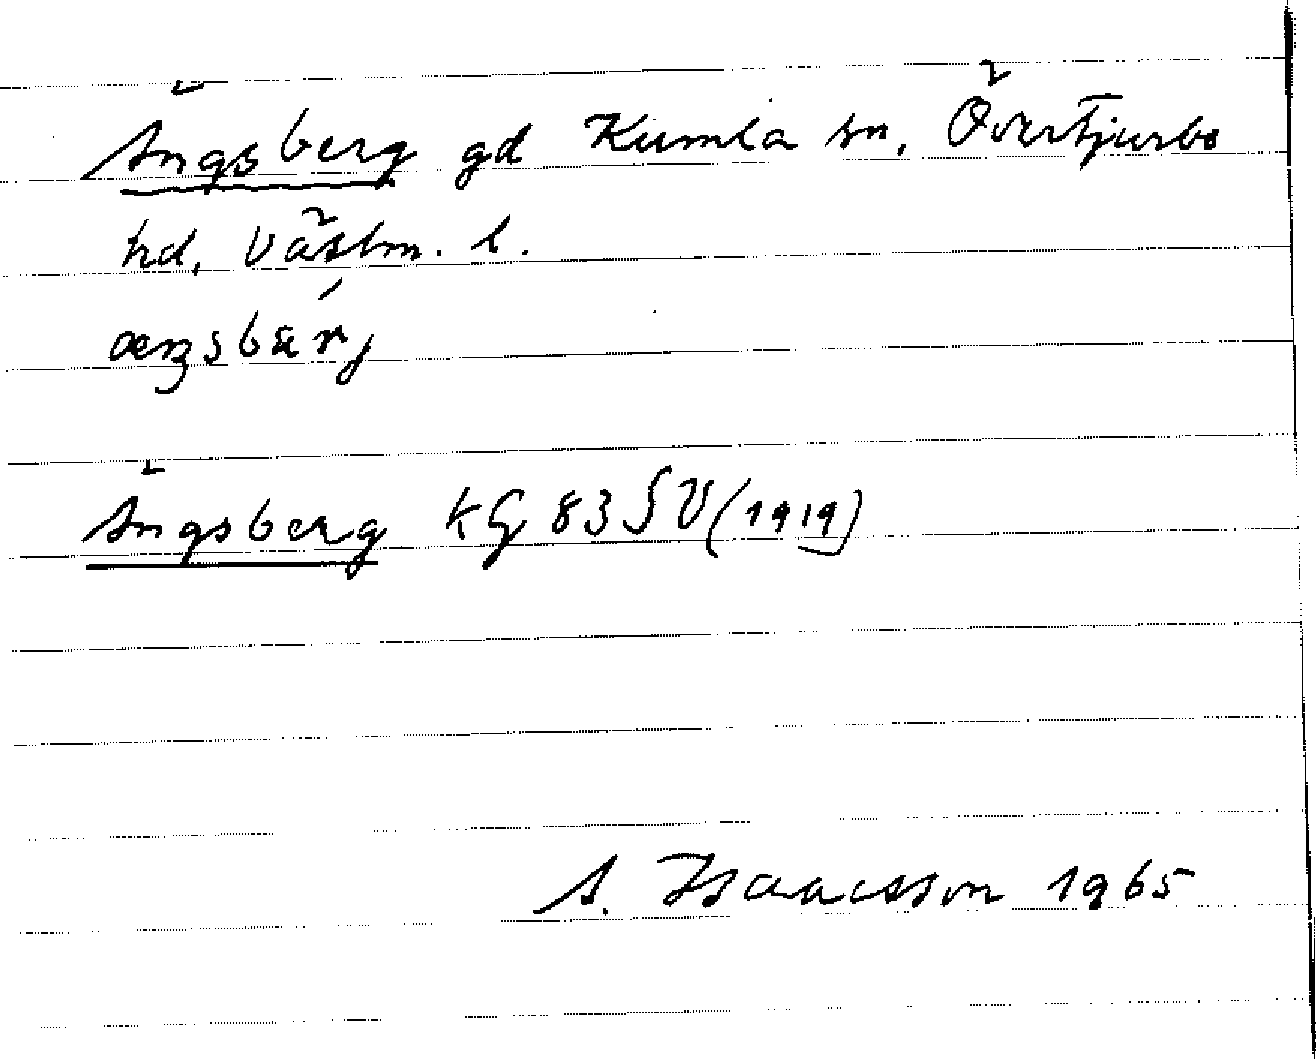 Ängsberg gd Kumla sn, Övertjurbo
hd, Västm. l.
æŋsbäŕj
Ängsberg KG 83 SV (1919)
A. Isaacsson 1965